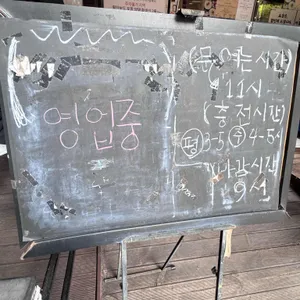 영업중
(문 여는 시간)
11시
(휴 전시간)
평 3-5 주 4-5시
마감시간
9시